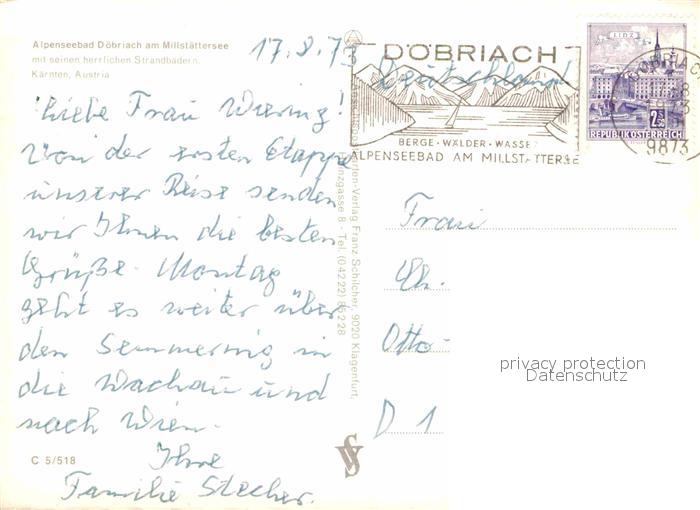 Alpenseebad Döbriach am Millstättersee
mit seinen herrlichen Strandbädern.
Kärnten, Austria
17.8.73
Liebe Frau Wiering!
Von der ersten Etappe
unserer Reise senden
wir Ihnen die besten
Grüße. Montag
geht es weiter über
den Semmering in
die Wachau und
nach Wien.
Ihre
Familie Stecher.
C 5/518
Karten-Verlag Franz Schilcher, 9020 Klagenfurt,
gasse 8 - Tel. (04222) 85228
DÖBRIACH
Deutschland
BERGE · WÄLDER · WASSER
ALPENSEEBAD AM MILLSTÄTTERSEE
LINZ
2.50
REPUBLIK ÖSTERREICH
DÖBRIACH
9873
Frau
Eh.
Otto-
D 1
privacy protection
Datenschutz